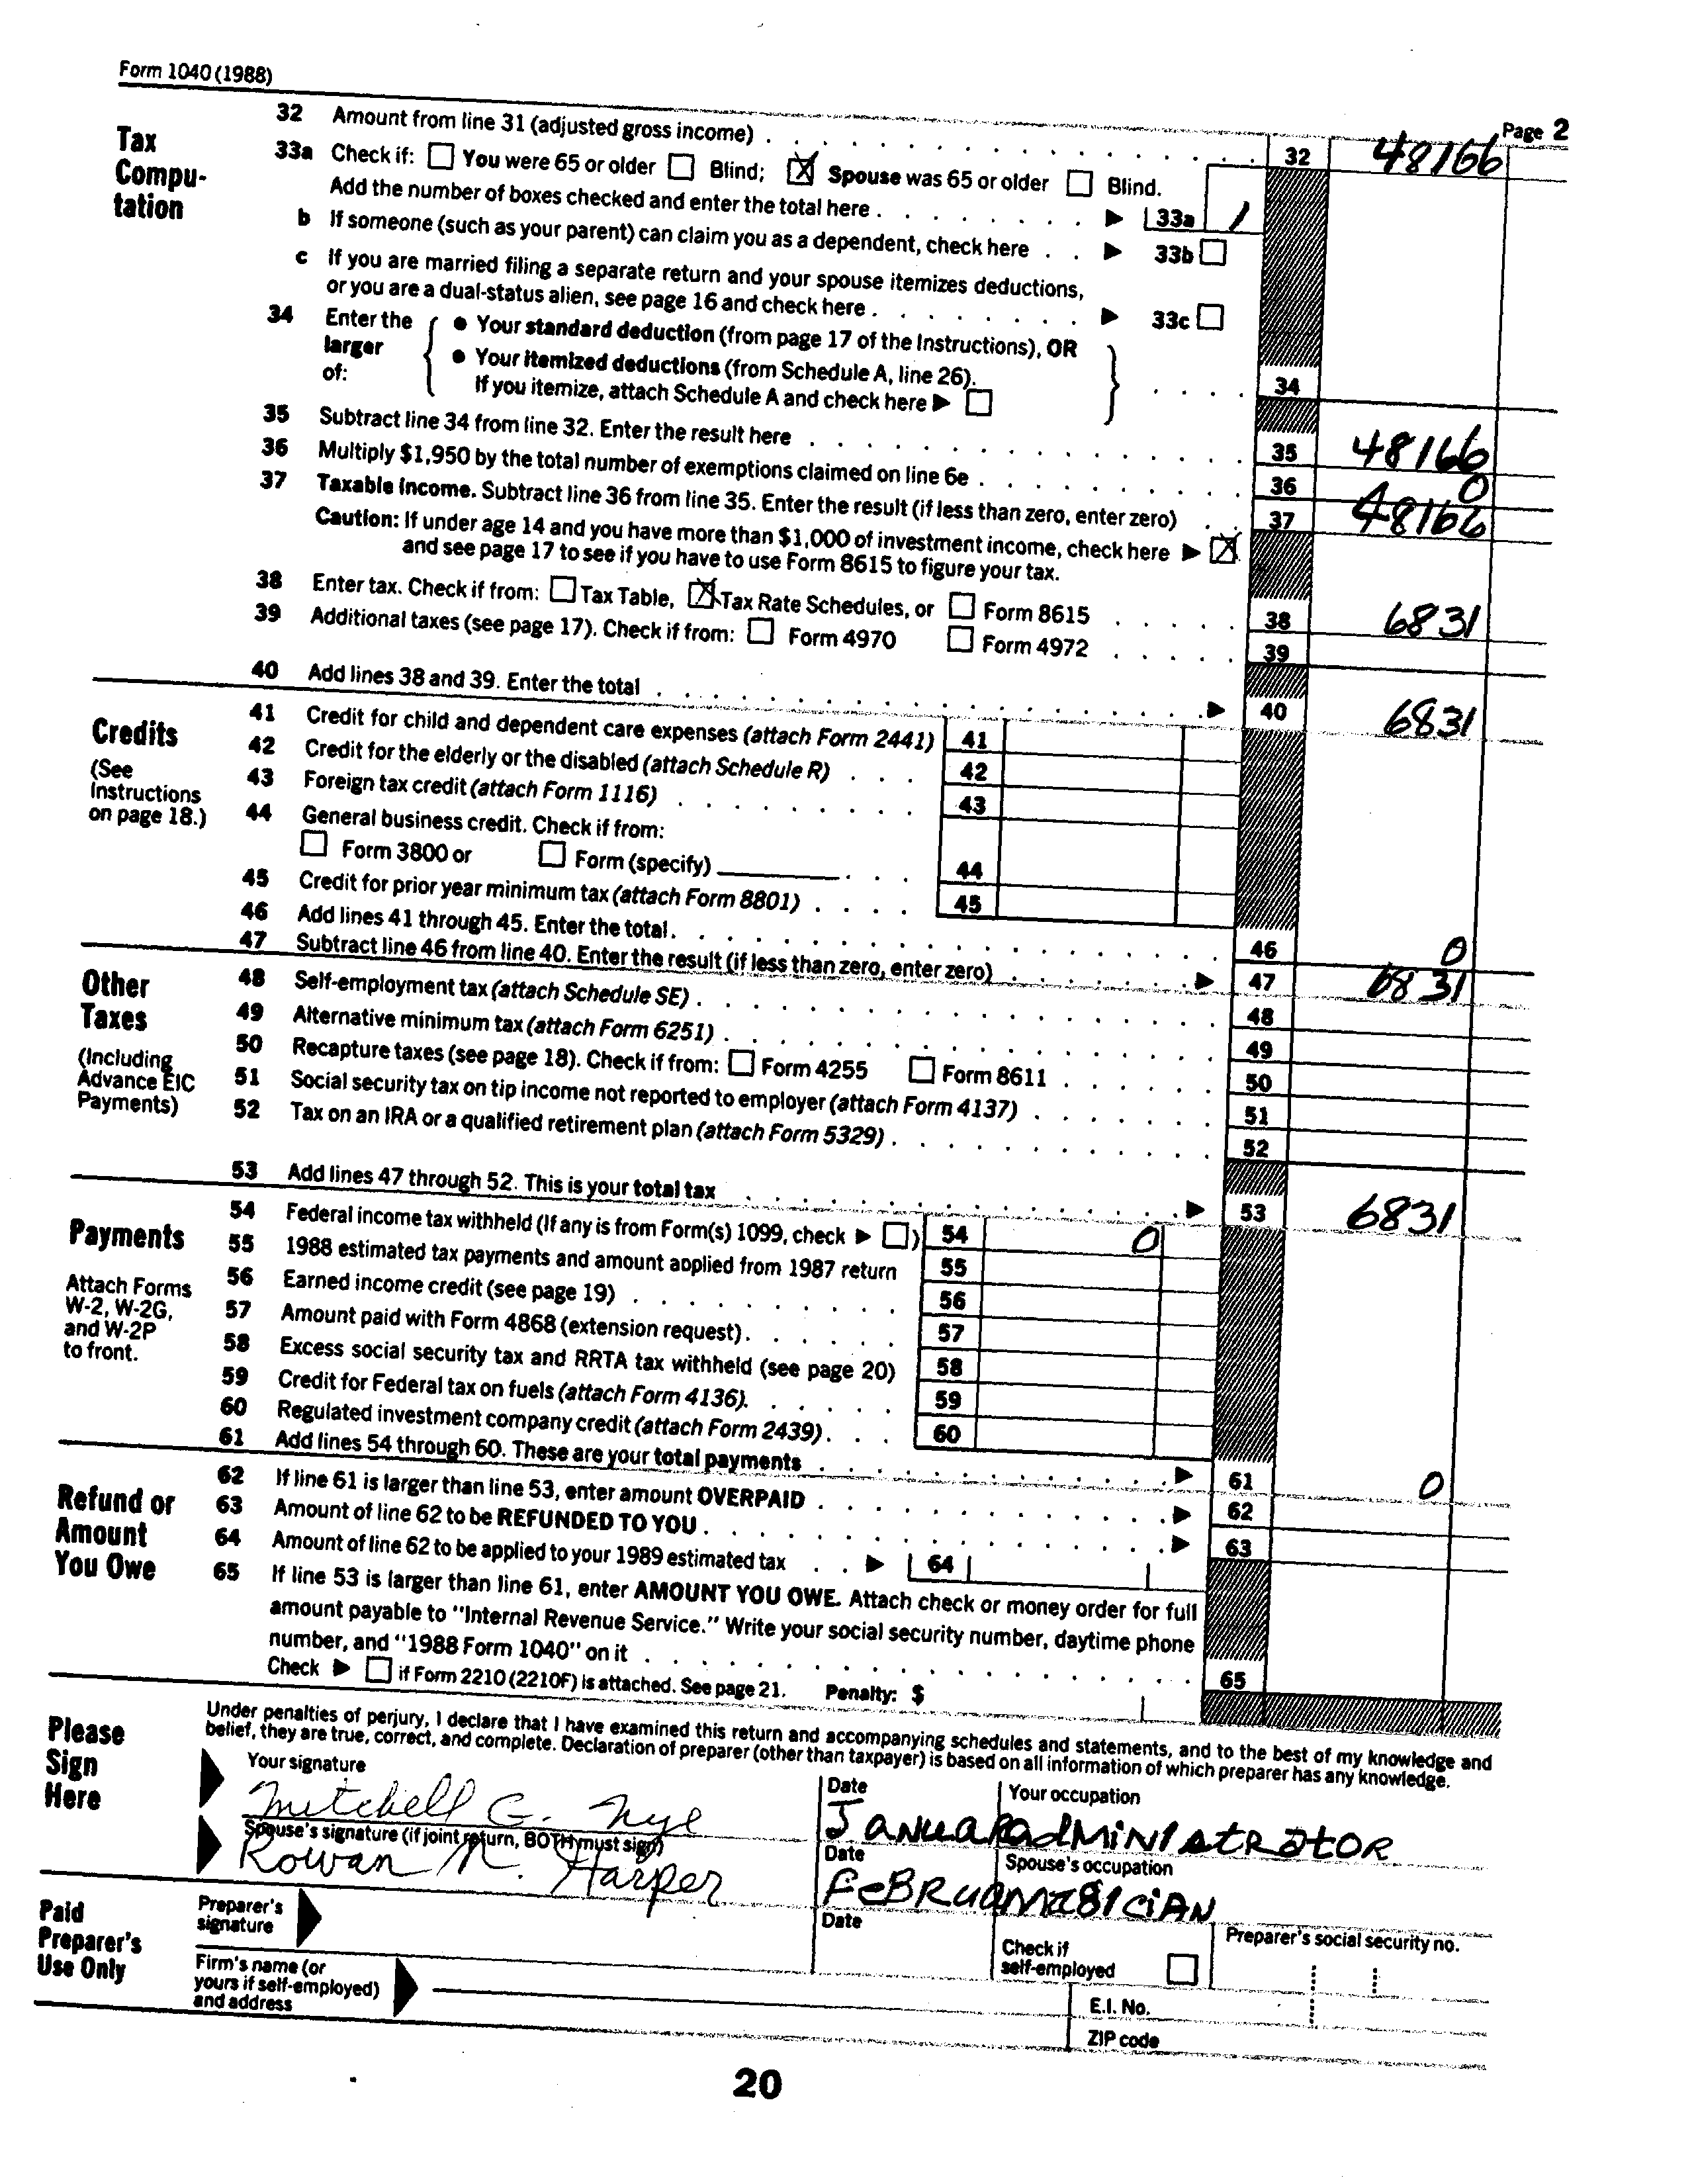 Form 1040 (1988)
Page 2
Tax Compu-tation
32 Amount from line 31 (adjusted gross income) . . . 32 48166
33a Check if: ☐ You were 65 or older ☐ Blind; ☒ Spouse was 65 or older ☐ Blind.
Add the number of boxes checked and enter the total here . . . ▶ 33a 1
b If someone (such as your parent) can claim you as a dependent, check here . . ▶ 33b ☐
c If you are married filing a separate return and your spouse itemizes deductions,
or you are a dual-status alien, see page 16 and check here . . . ▶ 33c ☐
34 Enter the larger of: { • Your standard deduction (from page 17 of the Instructions), OR
• Your itemized deductions (from Schedule A, line 26).
If you itemize, attach Schedule A and check here ▶ ☐ } . . . . 34
35 Subtract line 34 from line 32. Enter the result here . . . 35 48166
36 Multiply $1,950 by the total number of exemptions claimed on line 6e . . . 36 0
37 Taxable income. Subtract line 36 from line 35. Enter the result (if less than zero, enter zero) . . 37 48166
Caution: If under age 14 and you have more than $1,000 of investment income, check here ▶ ☒
and see page 17 to see if you have to use Form 8615 to figure your tax.
38 Enter tax. Check if from: ☐ Tax Table, ☒ Tax Rate Schedules, or ☐ Form 8615 . . . 38 6831
39 Additional taxes (see page 17). Check if from: ☐ Form 4970 ☐ Form 4972 . . . 39
40 Add lines 38 and 39. Enter the total . . . ▶ 40 6831
Credits
(See Instructions on page 18.)
41 Credit for child and dependent care expenses (attach Form 2441) 41
42 Credit for the elderly or the disabled (attach Schedule R) . . . 42
43 Foreign tax credit (attach Form 1116) . . . 43
44 General business credit. Check if from:
☐ Form 3800 or ☐ Form (specify) . . . 44
45 Credit for prior year minimum tax (attach Form 8801) . . . . 45
46 Add lines 41 through 45. Enter the total . . . 46 0
47 Subtract line 46 from line 40. Enter the result (if less than zero, enter zero) . . . ▶ 47 6831
Other Taxes
(Including Advance EIC Payments)
48 Self-employment tax (attach Schedule SE) . . . 48
49 Alternative minimum tax (attach Form 6251) . . . 49
50 Recapture taxes (see page 18). Check if from: ☐ Form 4255 ☐ Form 8611 . . . 50
51 Social security tax on tip income not reported to employer (attach Form 4137) . . . 51
52 Tax on an IRA or a qualified retirement plan (attach Form 5329) . . . 52
53 Add lines 47 through 52. This is your total tax . . . ▶ 53 6831
Payments
Attach Forms W-2, W-2G, and W-2P to front.
54 Federal income tax withheld (If any is from Form(s) 1099, check ▶ ☐ ) 54 0
55 1988 estimated tax payments and amount applied from 1987 return 55
56 Earned income credit (see page 19) . . . 56
57 Amount paid with Form 4868 (extension request) . . . 57
58 Excess social security tax and RRTA tax withheld (see page 20) 58
59 Credit for Federal tax on fuels (attach Form 4136). . . . 59
60 Regulated investment company credit (attach Form 2439) . . . 60
61 Add lines 54 through 60. These are your total payments . . . ▶ 61 0
Refund or Amount You Owe
62 If line 61 is larger than line 53, enter amount OVERPAID . . . ▶ 62
63 Amount of line 62 to be REFUNDED TO YOU . . . ▶ 63
64 Amount of line 62 to be applied to your 1989 estimated tax . . ▶ 64
65 If line 53 is larger than line 61, enter AMOUNT YOU OWE. Attach check or money order for full
amount payable to "Internal Revenue Service." Write your social security number, daytime phone
number, and "1988 Form 1040" on it . . . 65
Check ▶ ☐ if Form 2210 (2210F) is attached. See page 21. Penalty: $
Please Sign Here
Under penalties of perjury, I declare that I have examined this return and accompanying schedules and statements, and to the best of my knowledge and
belief, they are true, correct, and complete. Declaration of preparer (other than taxpayer) is based on all information of which preparer has any knowledge.
Your signature
Mitchell G. Nye
Date
Your occupation
ADMINISTRATOR
Spouse's signature (if joint return, BOTH must sign)
Rowan N. Harper
Date
Spouse's occupation
Paid Preparer's Use Only
Preparer's signature
Date
Check if self-employed ☐
Preparer's social security no.
Firm's name (or yours if self-employed) and address
E.I. No.
ZIP code
20